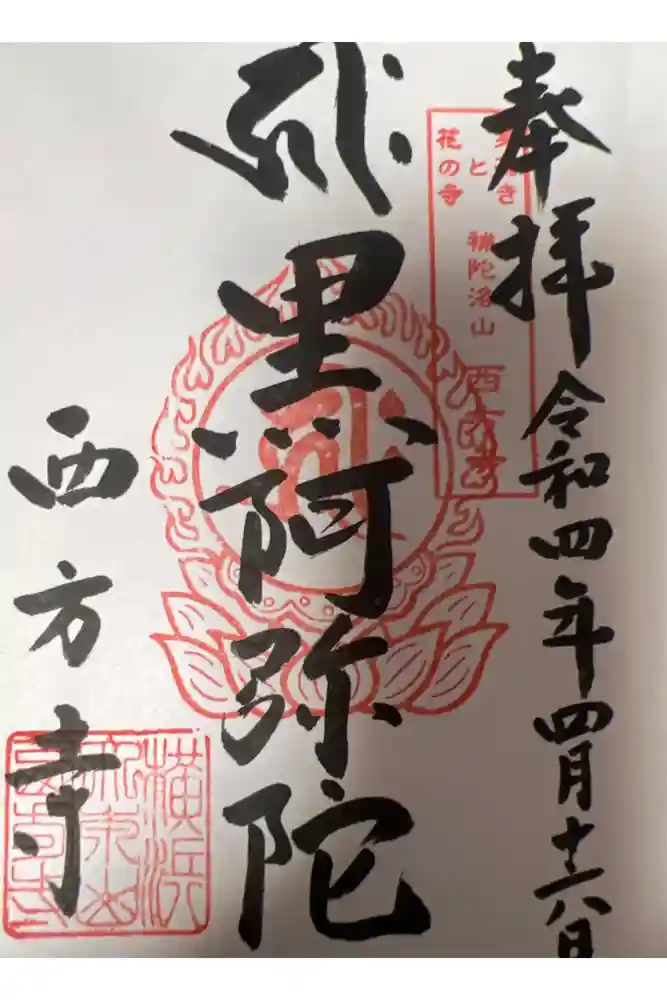 奉拝 令和四年四月十六日
き
と
花の寺
補陀洛山 西方寺
黒阿弥陀
西方寺
横浜